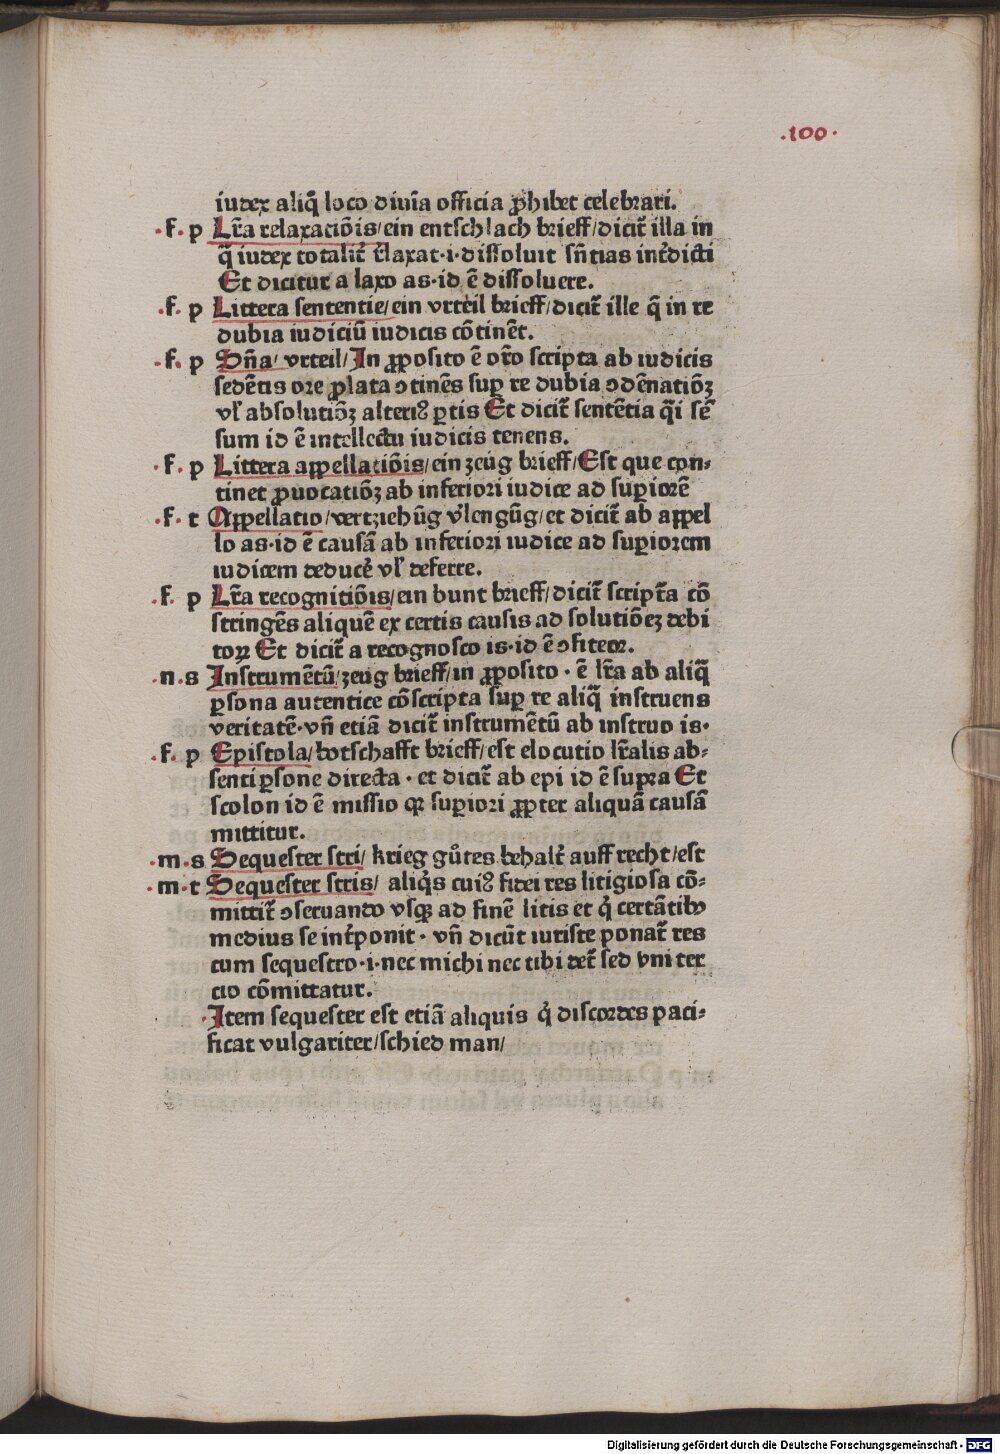 .100.
iudex aliq̃ loco diuīa officia ꝓhibet celebrari.
.f. p Lr̃a relaxaciōis/ein entschlach brieff/dicit̃ illa in
q̃ iudex totalit̃ r̃laxat·i·dissoluit sñtias int̾dicti
Et dicitur a laxo as·id ē dissoluere.
.f. p Littera sententie/ein vrteil brieff/dicit̃ ille q̃ in re
dubia iudiciū iudicis cōtinēt.
.f. p Sñia/ vrteil/In ꝓposito ē or̃o scripta ab iudicis
sedētis ore ꝓlata ꝯtinēs suꝑ re dubia ꝯdēnatiōꝫ
vl̃ absolutiōꝫ alteri9 ꝑtis Et dicit̃ sentētia q̃i sē
sum id ē intellectu iudicis tenens.
.f. p Littera appellatiōis/ein zeug brieff/Est que con-
tinet ꝓuocatiōꝫ ab inferiori iudice ad suꝑiorē
.f. t Appellatio/vertziehūg v̾lengūg/et dicit̃ ab appel
lo as·id ē causā ab inferiori iudice ad suꝑiorem
iudicem deduce̾ vl̃ deferre.
.f. p Lr̃a recognitiōis/ein bunt brieff/dicit̃ script̃a cō
stringēs aliquē ex certis causis ad solutiōeꝫ debi
toꝝ Et dicit̃ a recognosco is·id ē ꝯfiteor.
.n.s Instrumētū/zeug brieff/in ꝓposito · ē lr̃a ab aliq̃
ꝑsona autentice cōscripta suꝑ re aliq̃ instruens
veritatē·vñ etiā dicit̃ instrumētū ab instruo is·
.f. p Epistola/botschafft brieff/est elocutio lr̃alis ab-
senti ꝑsone directa · et dicit̃ ab epi id ē supra Et
scolon id ē missio qꝛ suꝑiori ꝓpter aliquā causā
mittitur.
.m.s Sequester stri/ krieg gůtes behalt̾ auff recht/est
.m.t Sequester stris/ aliq̾s cui9 fidei res litigiosa cō-
mittit̃ ꝯseruando vsqꝫ ad finē litis et q̾ certātibꝰ
medius se int̾ponit · vñ dicūt iuriste ponat̃ res
cum sequestro·i·nec michi nec tibi det̃ sed vni ter
cio cōmittatur.
·Item sequester est etiā aliquis q̾ discordes paci-
ficat vulgariter/schied man/
Digitalisierung gefördert durch die Deutsche Forschungsgemeinschaft - DFG